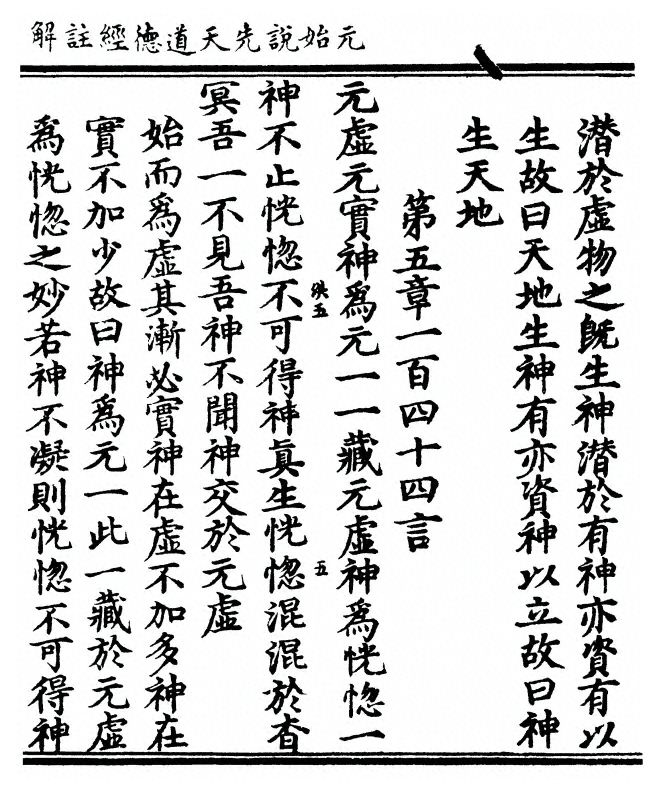 元始說先天道德經註解
潜於虛物之旣生神潜於有神亦資有以
生故曰天地生神有亦資神以立故曰神
生天地
第五章一百四十四言
元虛元實神爲元一一藏元虛神爲恍惚一
神不止恍惚不可得神眞生恍惚混混於杳
冥吾一不見吾神不聞神交於元虛
始而爲虛其漸必實神在虛不加多神在
實不加少故曰神爲元一此一藏於元虛
爲恍惚之妙若神不凝則恍惚不可得神
五